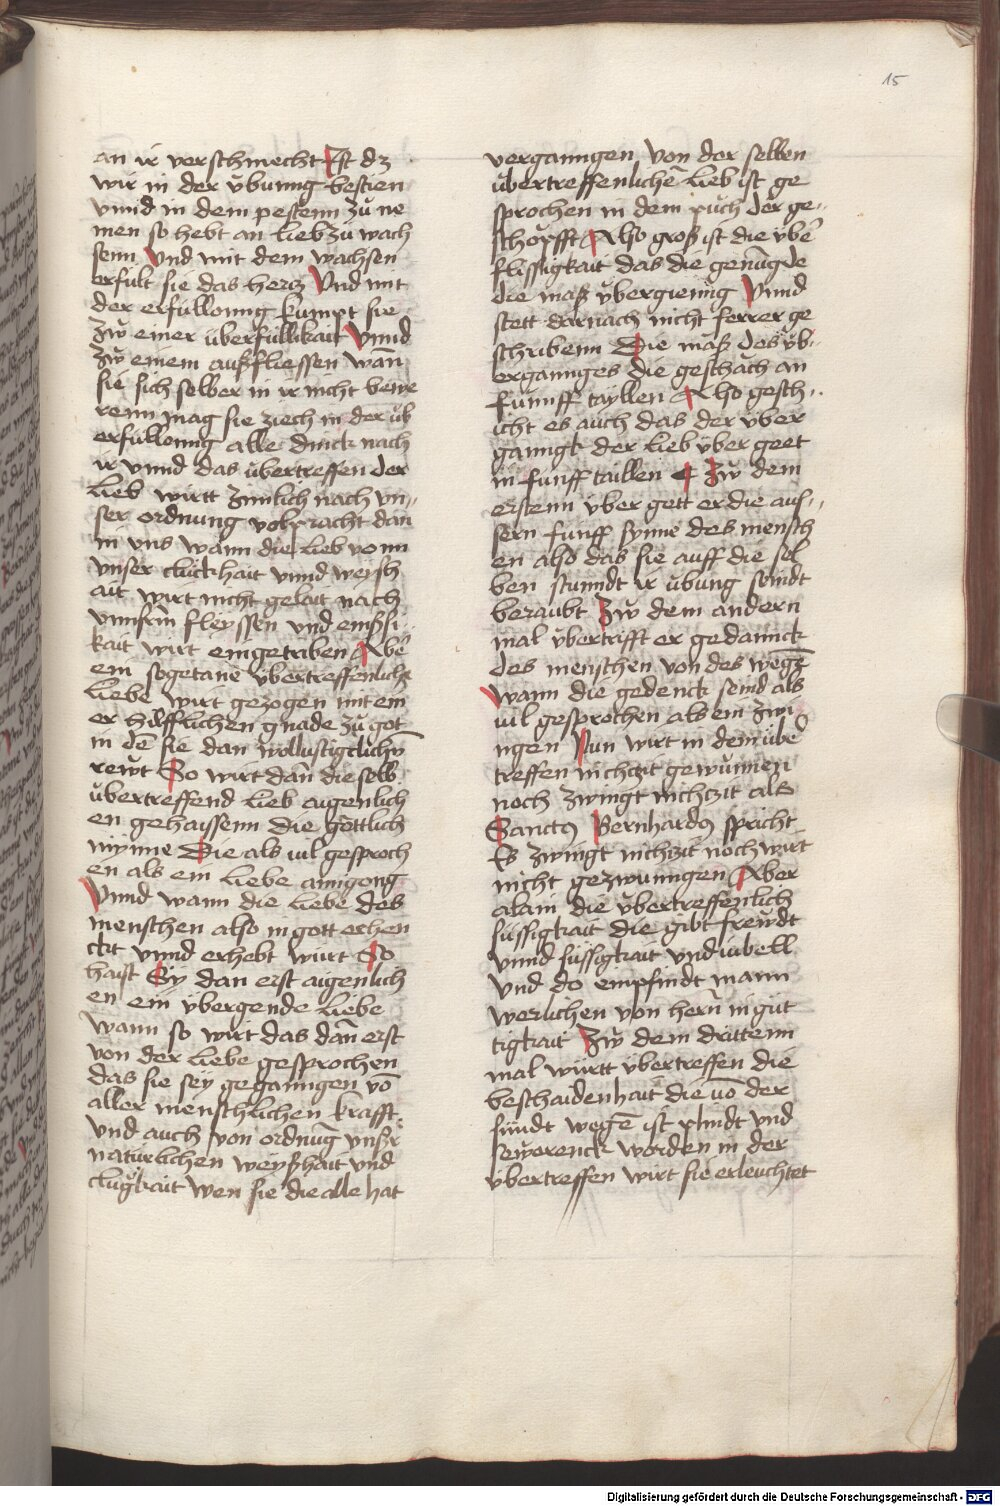 15
an ir verschmecht Ist dz
wir in der vbunng bestien
vnnd in dem pestenn zů ne
men so hebt an lieb zů wach
senn vnd mit dem wachsen
erfült sie das hertz Vnd mit
der erfüllonng kumpt sie
zů einer überfüllikait Vnnd
zů einem außfliessen wan̄
sie sich selber in ir nicht
renn mag sie ziech in der üb
erfüllonng alle dinck nach
ir vnnd das übertreffen der
lieb wirtt zimlich nach vn„
ser ordnung volpracht dan
in vns wann die lieb vonn
vnser cluckhait vnnd weish
ait wirt nicht gelait nach
vnnsrm fleyssen vnd emßsi
kait wirt eingetriben Abē
ein sogetane vbertreffenliche
liebe wirt gezogen mit ein
er hilfflichen gnade zů got
in dē sie dan
rewt So wirt dan̄ die selb
übertreffend lieb augenlich
en gehaissenn die göttlich
mynne Die als uil gesproch
en als ein liebe ainigong
Vnnd wann die liebe des
menschen also in gott erhen
ckt vnnd erhebt würt So
haist Sy dan erst aigenlich
en ein vbergende liebe
wann so wirt das dan̄ erst
von der liebe gesprochen
das sie sey gegangen vō
aller menschlichen krafft
vnd auch von ordnūg vnsr
natürlichen weyßhait vnd
clůgkait wen sie die alle hat
vergannigen von der selben
übertreffenlichē lieb ist ge
sprochen in dem půch der ge„
schöpfft Also groß ist die vbē
flissigkait das die genūgde
die maß vbergieng Vnnd
stett darnach nicht ferrer ge
schribenn Die maß des üb„
erganges die geschach an
fünnff tayllen Also gesch„
icht es auch das der vber
ganngk der lieb vber geet
in funff taillen ¶ Zů dem
erstenn vber gett er die aus„
sern funff synne des mensch
en also das sie auff die sel
ben stunndt ir vbung seindt
beraubt Zů dem andern
mal vbertrifft er gedannck
des menschen von des wegz
Wann die gedenck seind als
uil gesprochen als ein zwi
ngen Nun wirt in dem übē
treffen nichtzit gewunnen
noch zwingt nichtzit als
Sanctꝰ Bernhardꝰ spricht
Es zwingt nichtzit noch wirt
nicht gezwunngen Aber
alain die vbertreffenlich
süssigkait die gibt frewdt
vnnd süssigkait vnd iubell
vnd do empfindt mann
werlichen von hern̄ in güt
tigkait Zů dem drittenn
mal württ vbertreffen die
beschaidenhait die vō der
sündt wegē ist plindt vnd
worden in der
vbertreffen wirt sie erleuchtet
Digitalisierung gefördert durch die Deutsche Forschungsgemeinschaft - DFG